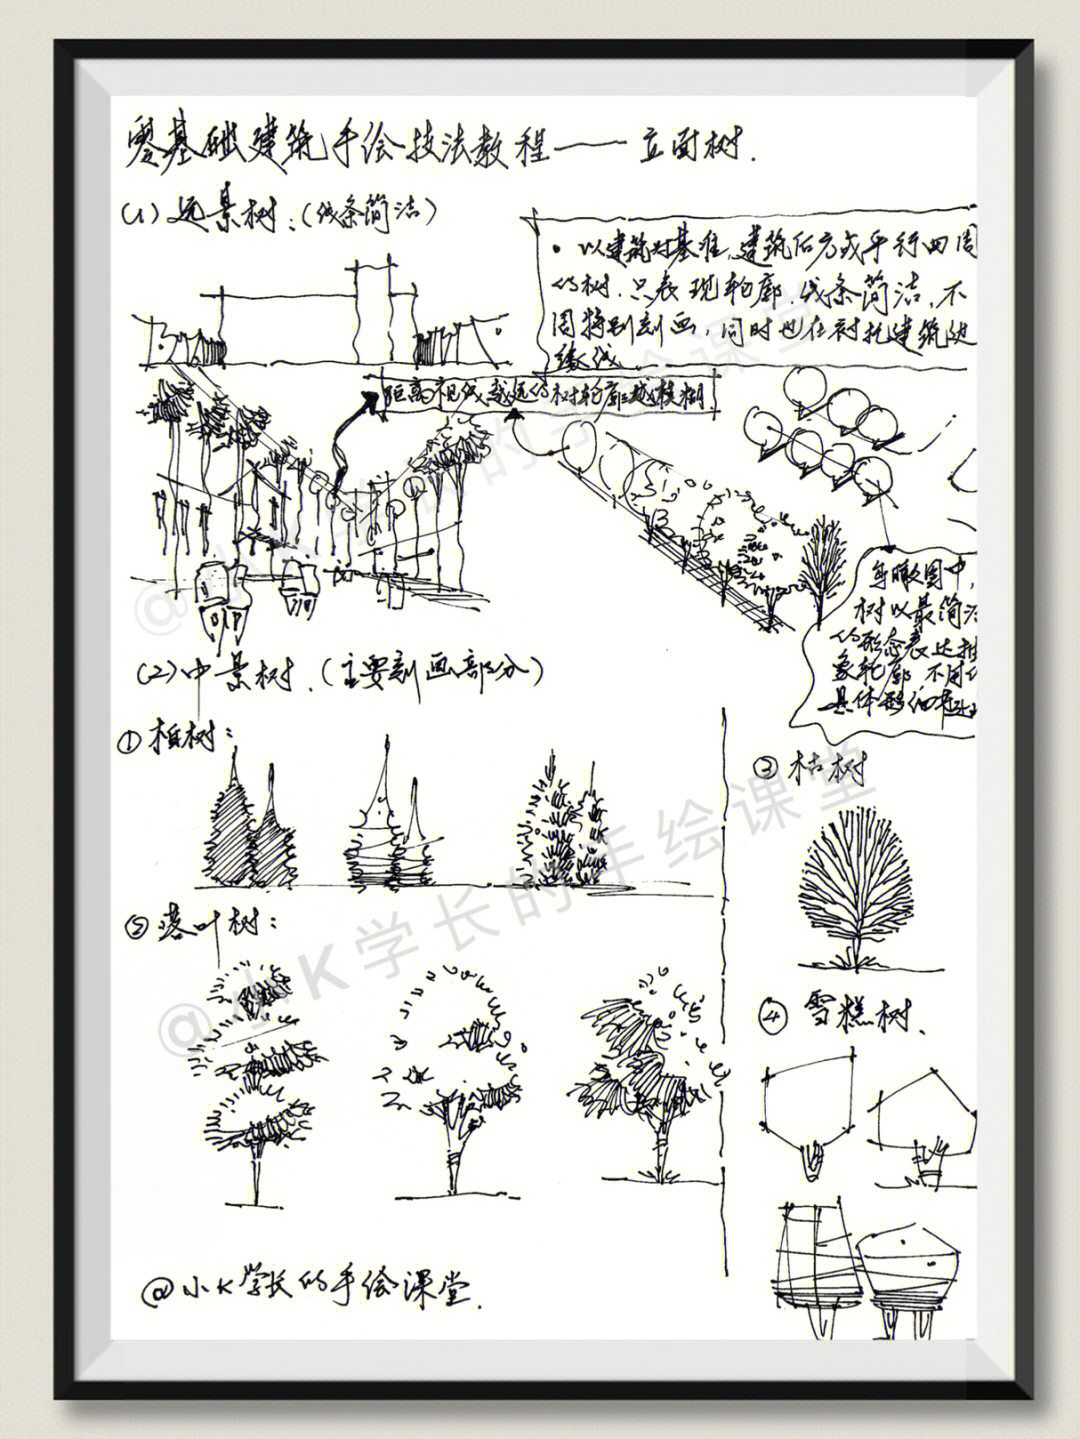 零基础建筑手绘技法教程——立面树.
(1) 远景树:(线条简洁)
• 以建筑为基准,建筑后方或平行四周
的树.只表现轮廓.线条简洁,不
用特别刻画,同时也在衬托建筑边
缘线
距离视线越远的树轮廓越模糊
鸟瞰图中,
树以最简洁
的形态表达抽
象轮廓,不用
具体
(2)中景树.(主要刻画部分)
① 柏树:
② 落叶树:
③ 枯树
④ 雪糕树.
@小K学长的手绘课堂.
@小K学长的手绘课堂
@小K学长的手绘课堂